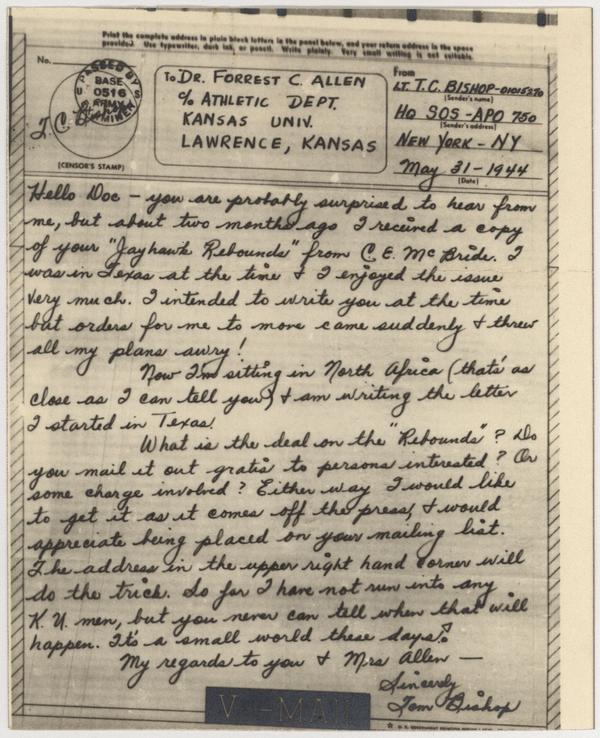 Print the complete address in plain block letters in the panel below, and your return address in the space
provided. Use typewriter, dark ink, or pencil. Write plainly. Very small writing is not suitable.
No.
PASSED BY
BASE
0516
ARMY
EXAMINER
(CENSOR'S STAMP)
To Dr. Forrest C. Allen
% Athletic Dept.
Kansas Univ.
Lawrence, Kansas
From
Lt. T.C. Bishop-01015270
(Sender's name)
Hq SOS-APO 750
(Sender's address)
New York - NY
May 31-1944
(Date)
Hello Doc - you are probably surprised to hear from
me, but about two months ago I received a copy
of your "Jayhawk Rebounds" from C.E. McBride. I
was in Texas at the time & I enjoyed the issue
very much. I intended to write you at the time
but orders for me to move came suddenly & threw
all my plans awry!
Now I'm sitting in North Africa (that's as
close as I can tell you) & am writing the letter
I started in Texas.
What is the deal on the "Rebounds"? Do
you mail it out gratis to persons interested? Or
some charge involved? Either way I would like
to get it as it comes off the press, & would
appreciate being placed on your mailing list.
The address in the upper right hand corner will
do the trick. So far I have not run into any
K.U. men, but you never can tell when that will
happen. It's a small world these days!
My regards to you & Mrs Allen —
Sincerely
Tom Bishop
V-MAIL